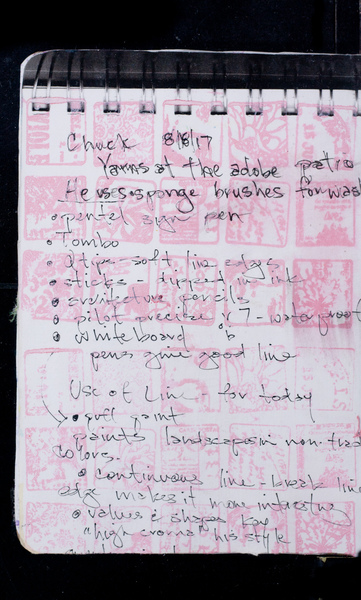 Chuck 8/8/17
Yarns at the adobe patio
He uses sponge brushes for wash
• pentel sign pen
• Tombo
• Qtips - soft line edges
• sticks dipped in ink
• architecture pencils
• pilot precise V7 - waterproof
• whiteboard
pens give good line
Use of Line - for today
• pull paint
paints landscapes in non-trad
colors.
• continuous line - break line
edge makes it more interesting
• values & shapes key
"high chroma" his style